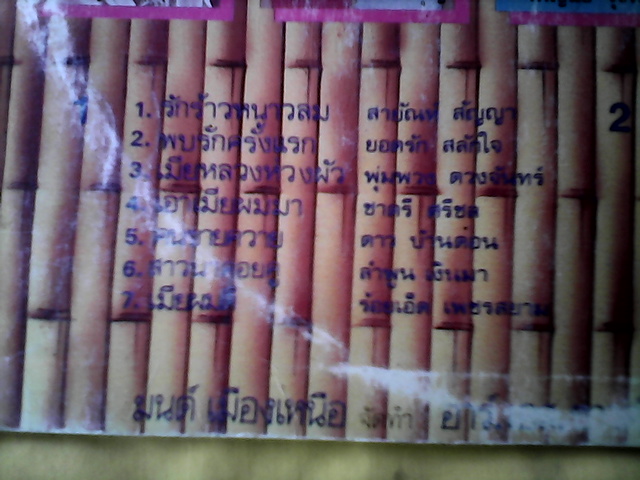 1
2
1. รักร้าวหนาวลม สายัณห์ สัญญา
2. พบรักครั้งแรก ยอดรัก สลักใจ
3. เมียหลวงหวงผัว พุ่มพวง ดวงจันทร์
4. เอาเมียผมมา ชาตรี ศรีชล
5. คนขายควาย ดาว บ้านดอน
6. สาวนาคอยคู่ ลำพูน เงินมา
7. เมียผมดี ร้อยเอ็ด เพชรสยาม
มนต์ เมืองเหนือ จัดทำ